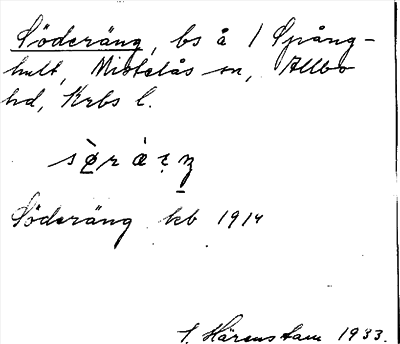 Söderäng, bs å 1 Spång-
hult, Mistelås sn, Allbo
hd, Krbs l.
Söderäng kb 1914
S. Härenstam 1933.